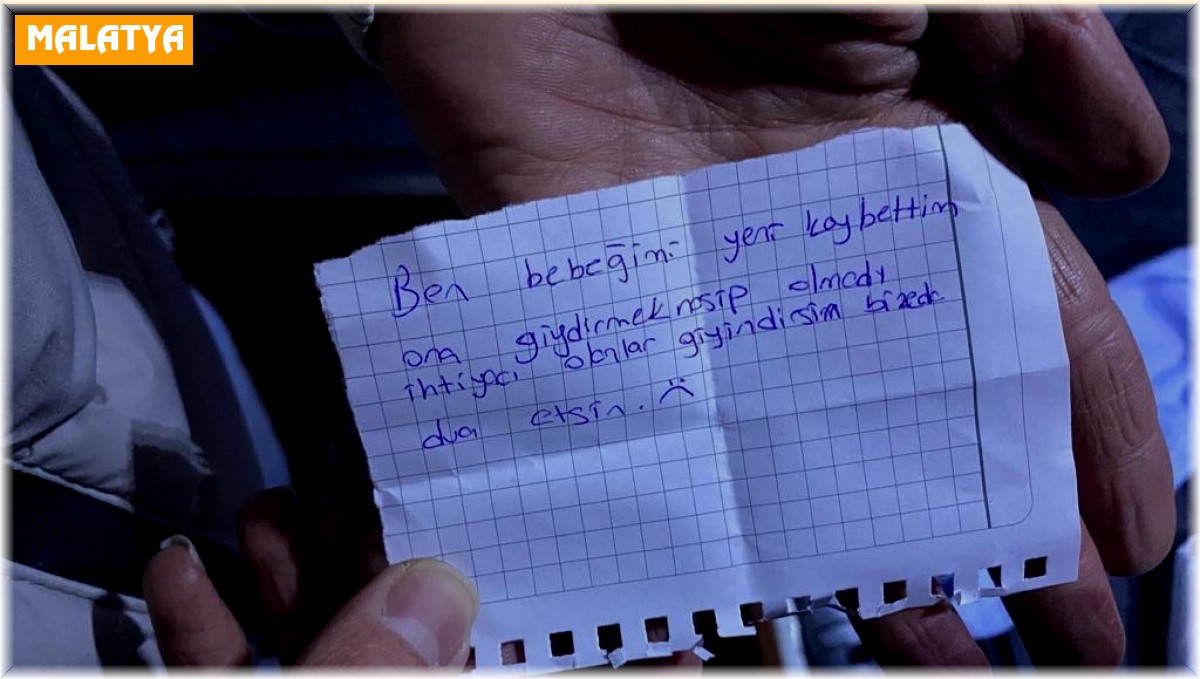 MALATYA
Ben bebeğimi yeni kaybettim
ona giydirmek nosip olmady
ihtiyacı olanlar giyindirsin bizede
dua etsin. :(